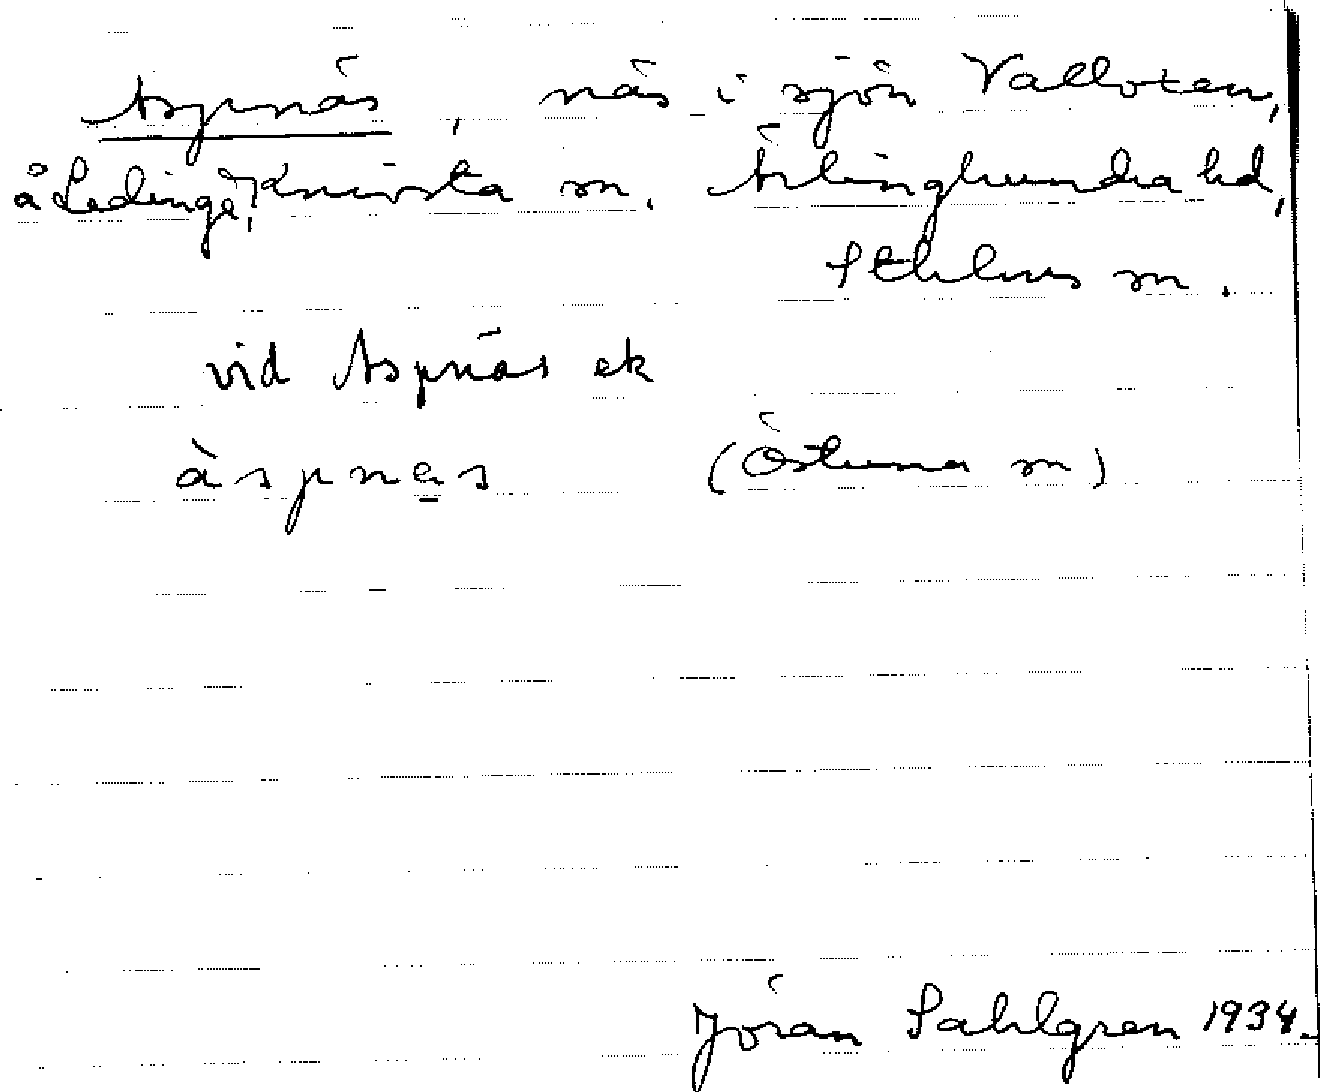 Aspnäs, näs i sjön Valloxen,
å Ledinge, Knivsta sn. Ärlinghundra hd,
Sthlms sn.
vid Aspnäs ek
àspnes (Östuna sn)
Jöran Sahlgren 1934.